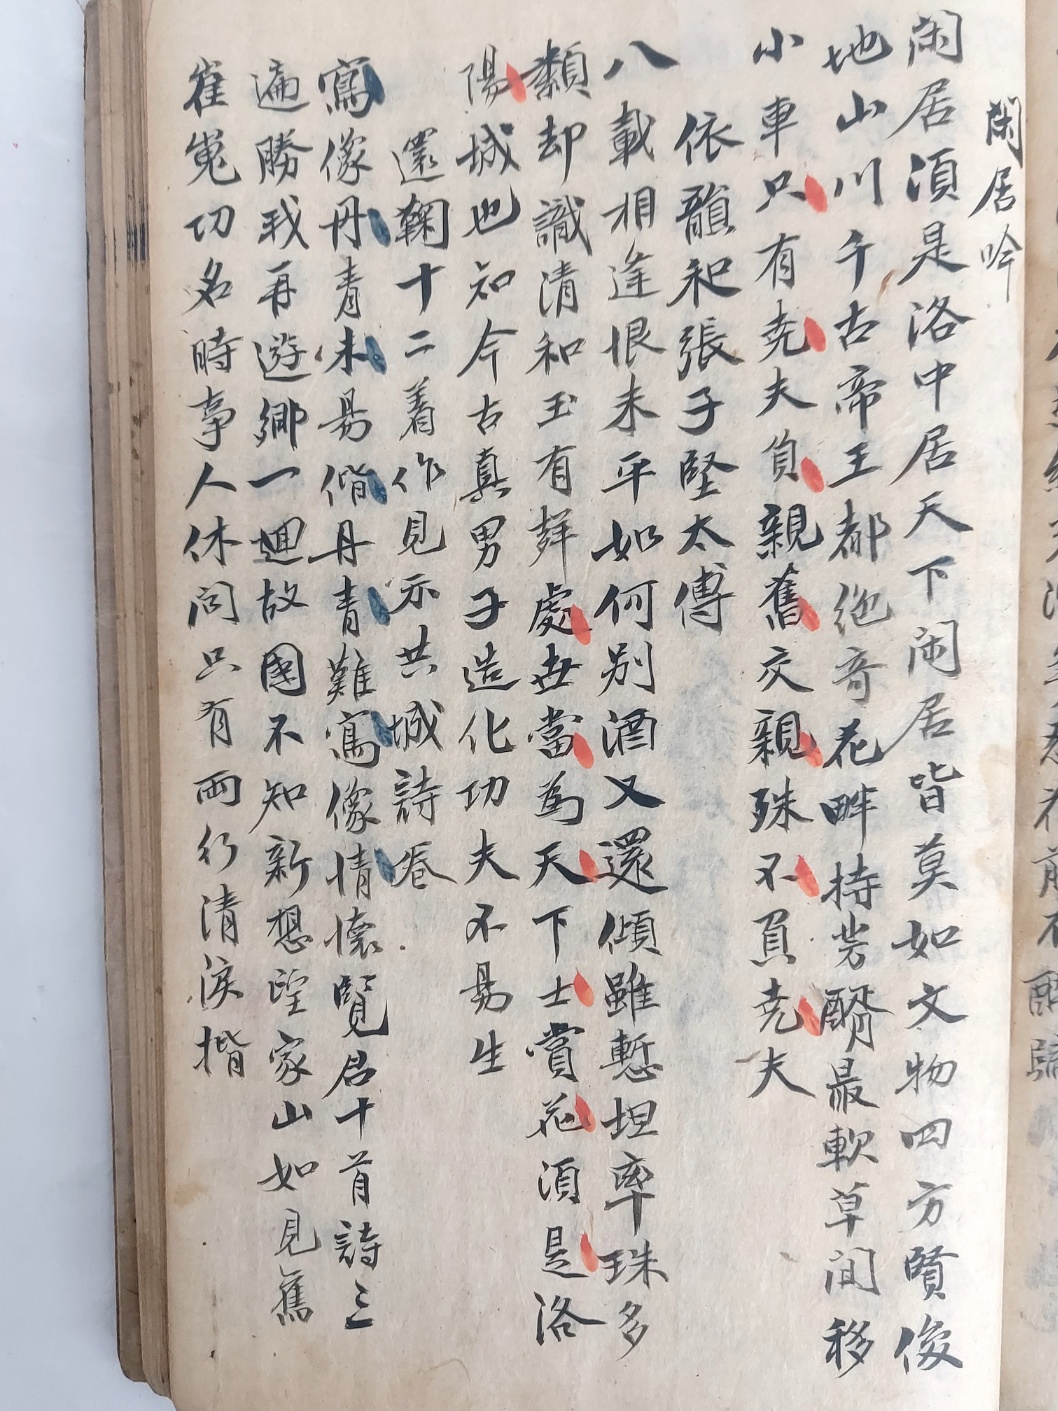 閑居吟
閑居須是洛中居天下閑居皆莫如文物四方賢俊
地山川千古帝王都絶竒花畔持芳醑最軟草間移
小車只有尭夫負親舊交親殊不負尭夫
依韻和張子堅太傅
八載相逢恨未平如何別酒又還傾雖慙坦率珠多
纇却識清和玉有聲處世當為天下士賞花須是洛
陽城也知今古真男子造化功夫不易生
還鞠十二着作見示共城詩卷
寫像丹青未易偕丹青難寫像情懷覽君十首詩三
遍勝我再遊鄉一廻故國不知新想望家山如見舊
崔嵬功名時事人休問只有兩行清淚揩